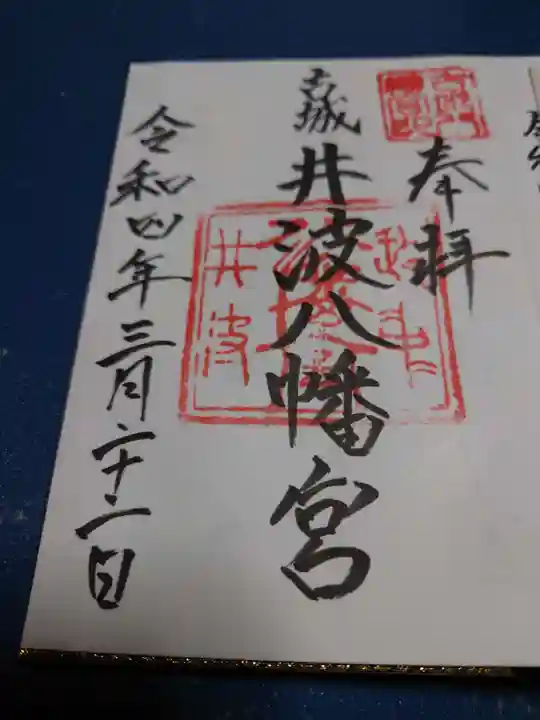 奉拝
古城
井波八幡宮
井波
令和四年三月二十二日